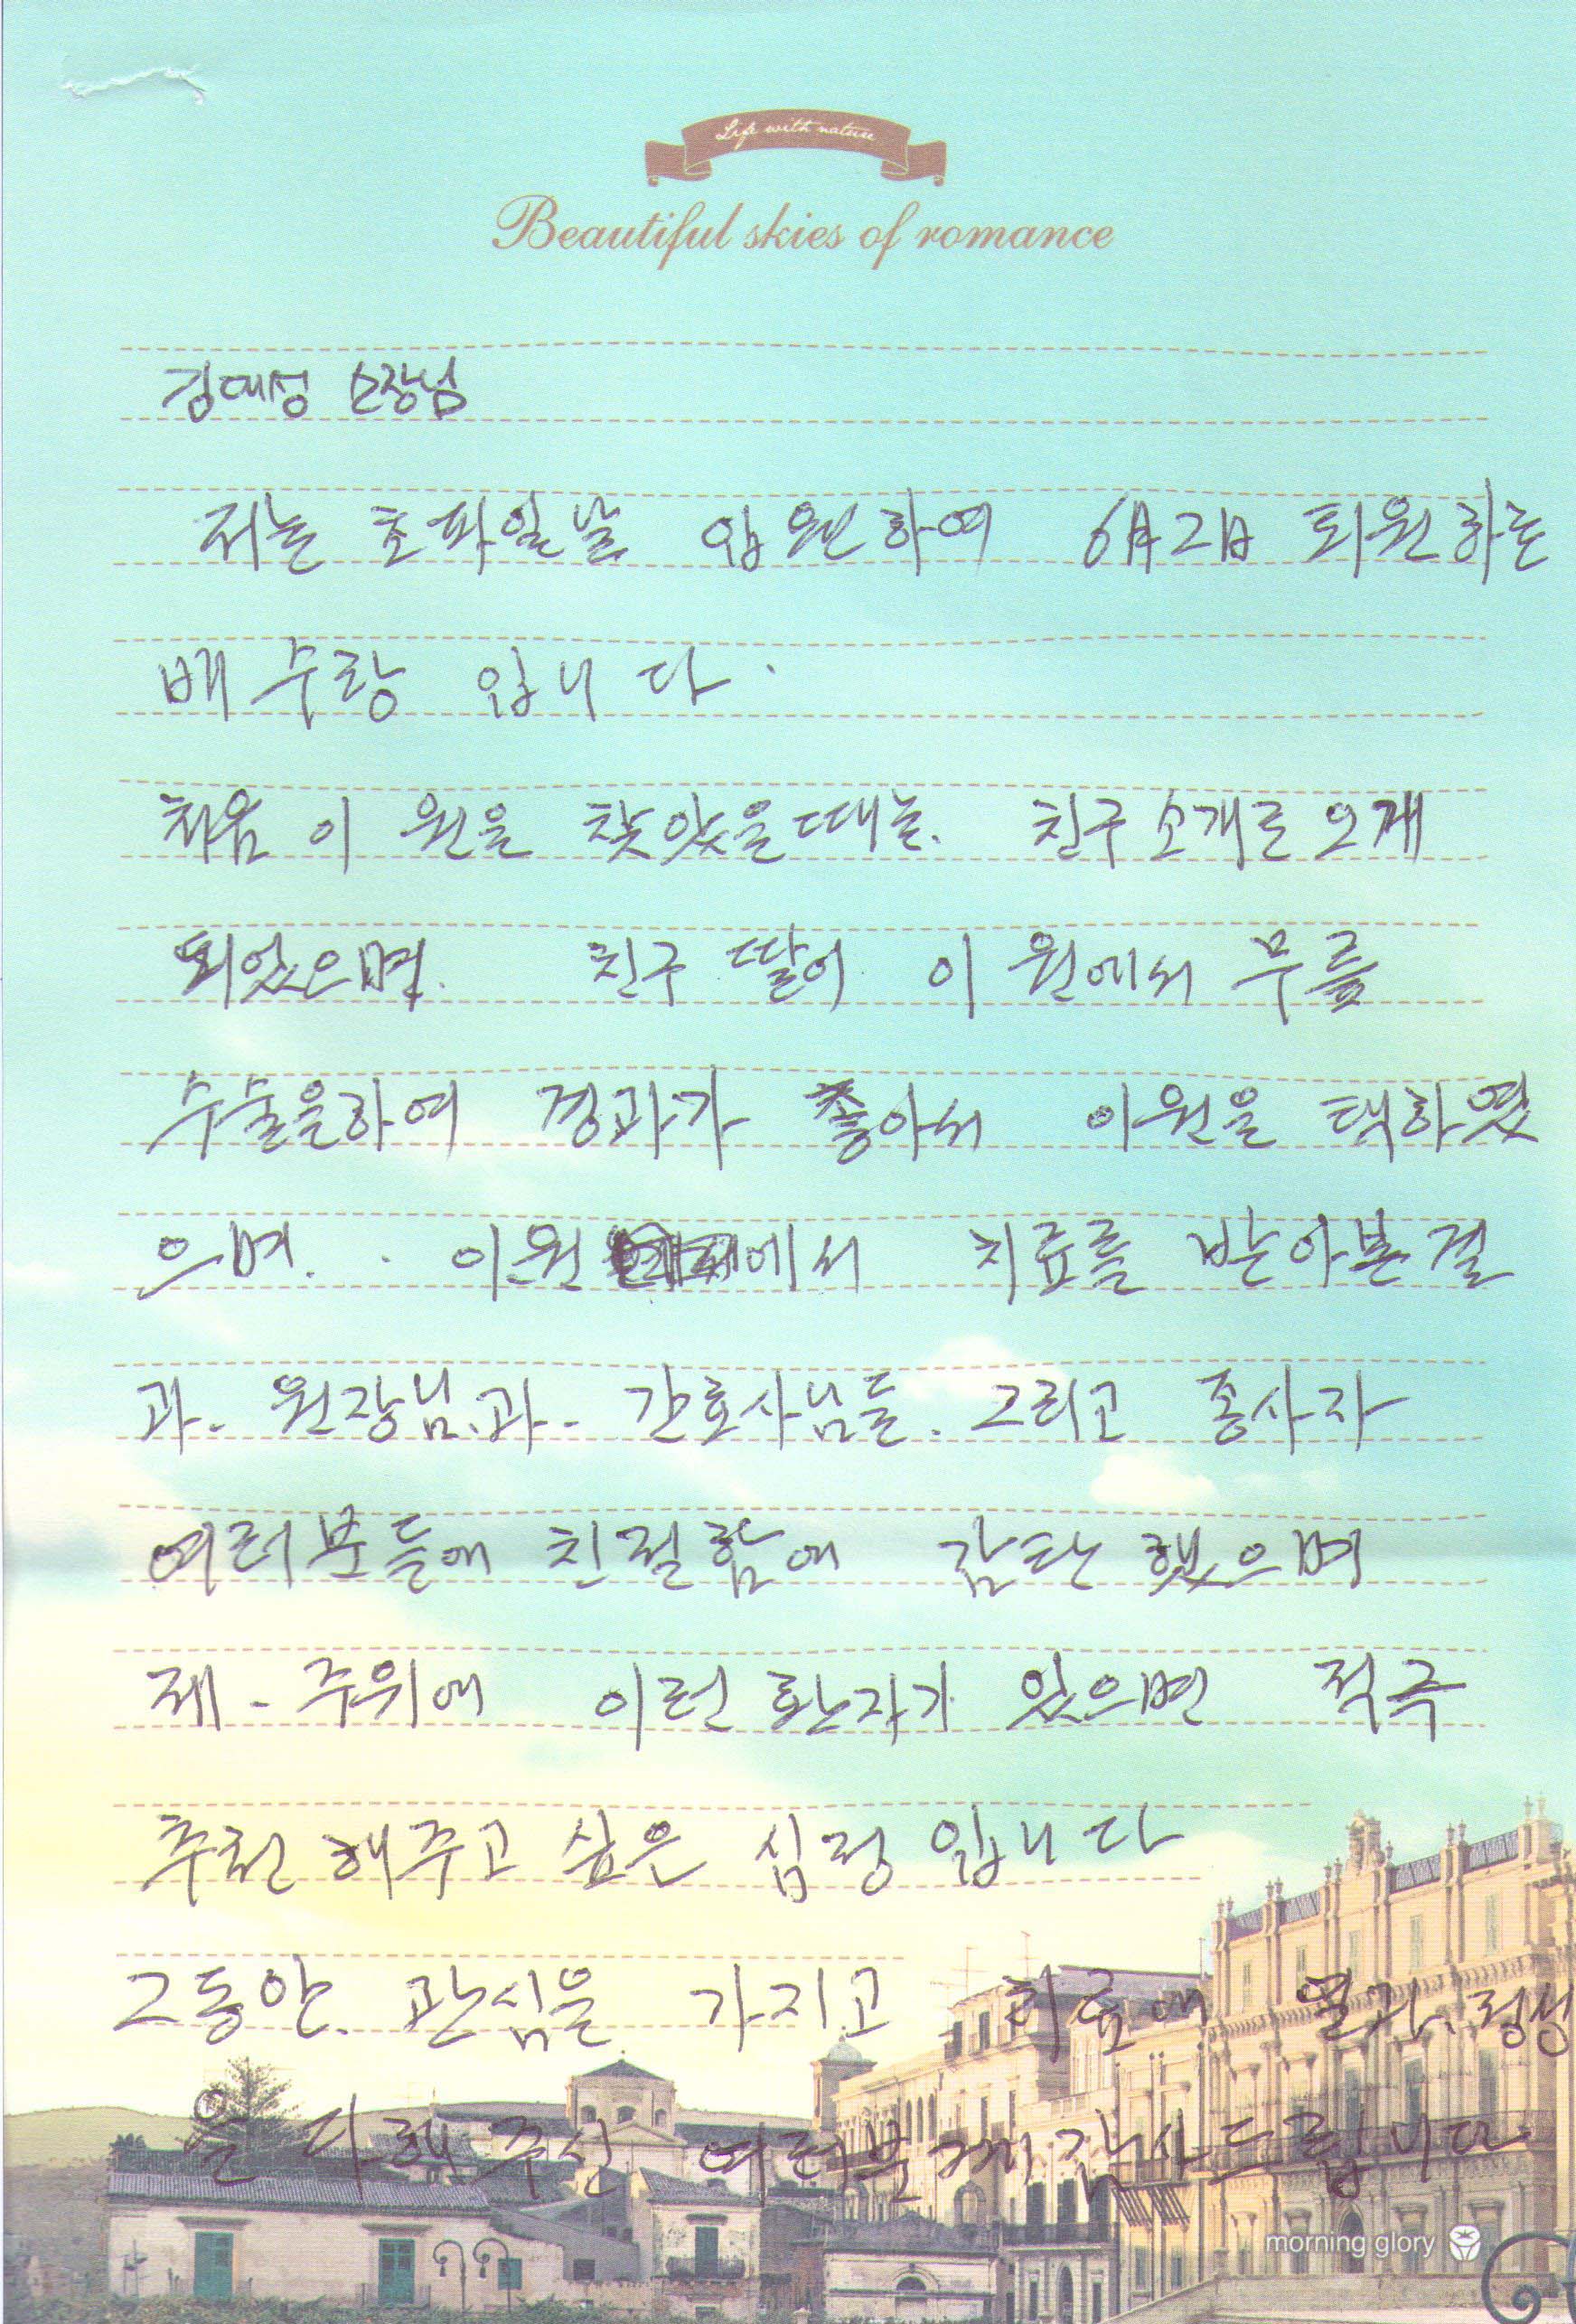 Life with nature
Beautiful skies of romance
김대성 소장님
저는 초파일날 입원하여 6月2日 퇴원하는
배수랑 입니다.
처음 이 원을 찾았을때는. 친구소개로 오게
되었으며. 친구 딸이 이 원에서 무릎
수술을하여 경과가 좋아서 이원을 택하였
으며. 이원 에서 치료를 받아본결
과. 원장님.과. 간호사님들. 그리고 종사자
여러분들에 친절함에 감탄했으며
제 - 주위에 이런 환자가 있으면 적극
추천해주고 싶은 심정입니다
그동안. 관심을 가지고 치료에 열과.정성
을 다해주신 여러분께 감사드립니다.
morning glory